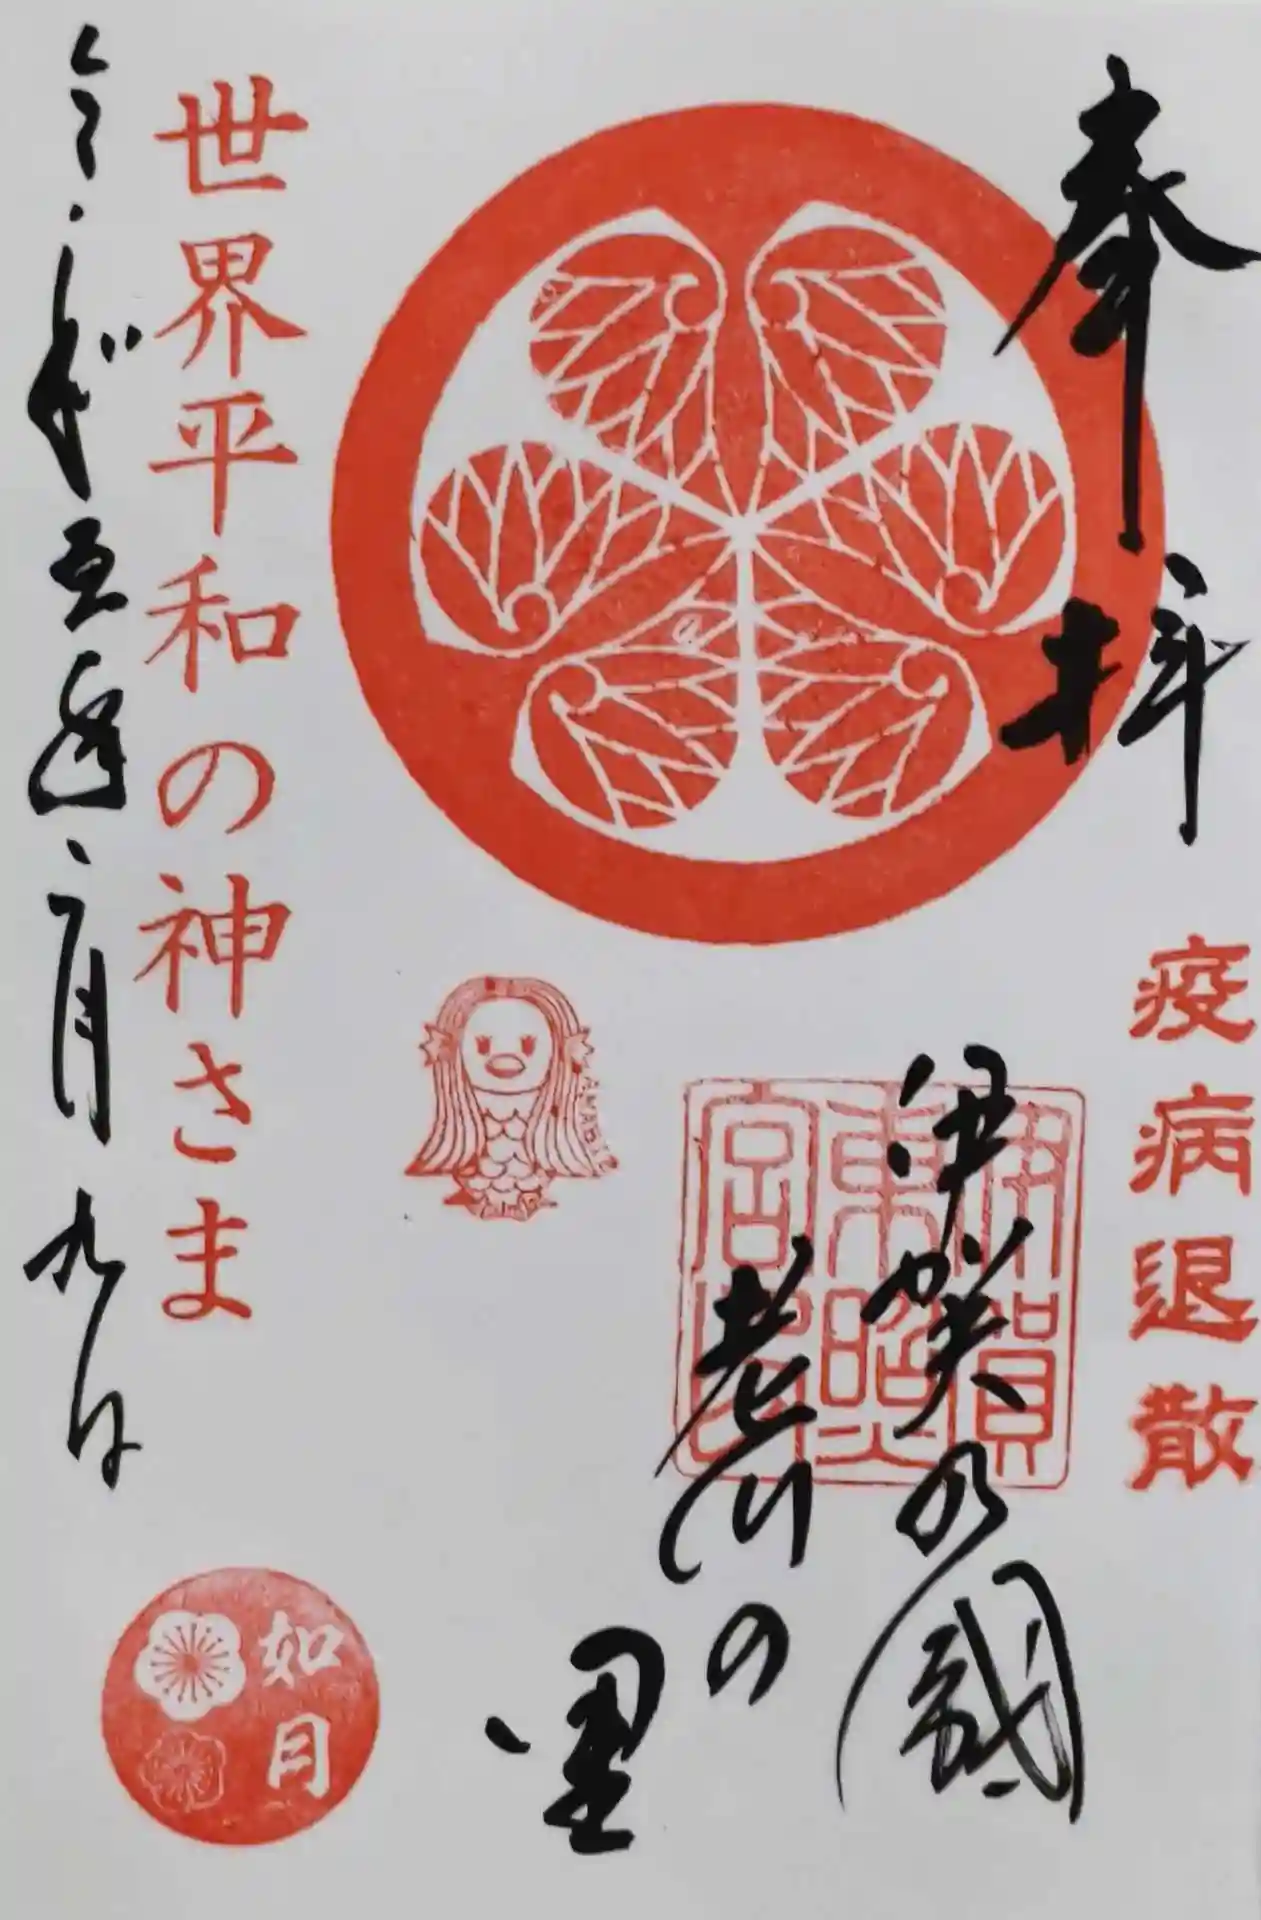 奉拝
疫病退散
伊賀の國
老川の
里
伊賀
東照
宮印
AMABIE
世界平和の神さま
令和五年二月九日
如月